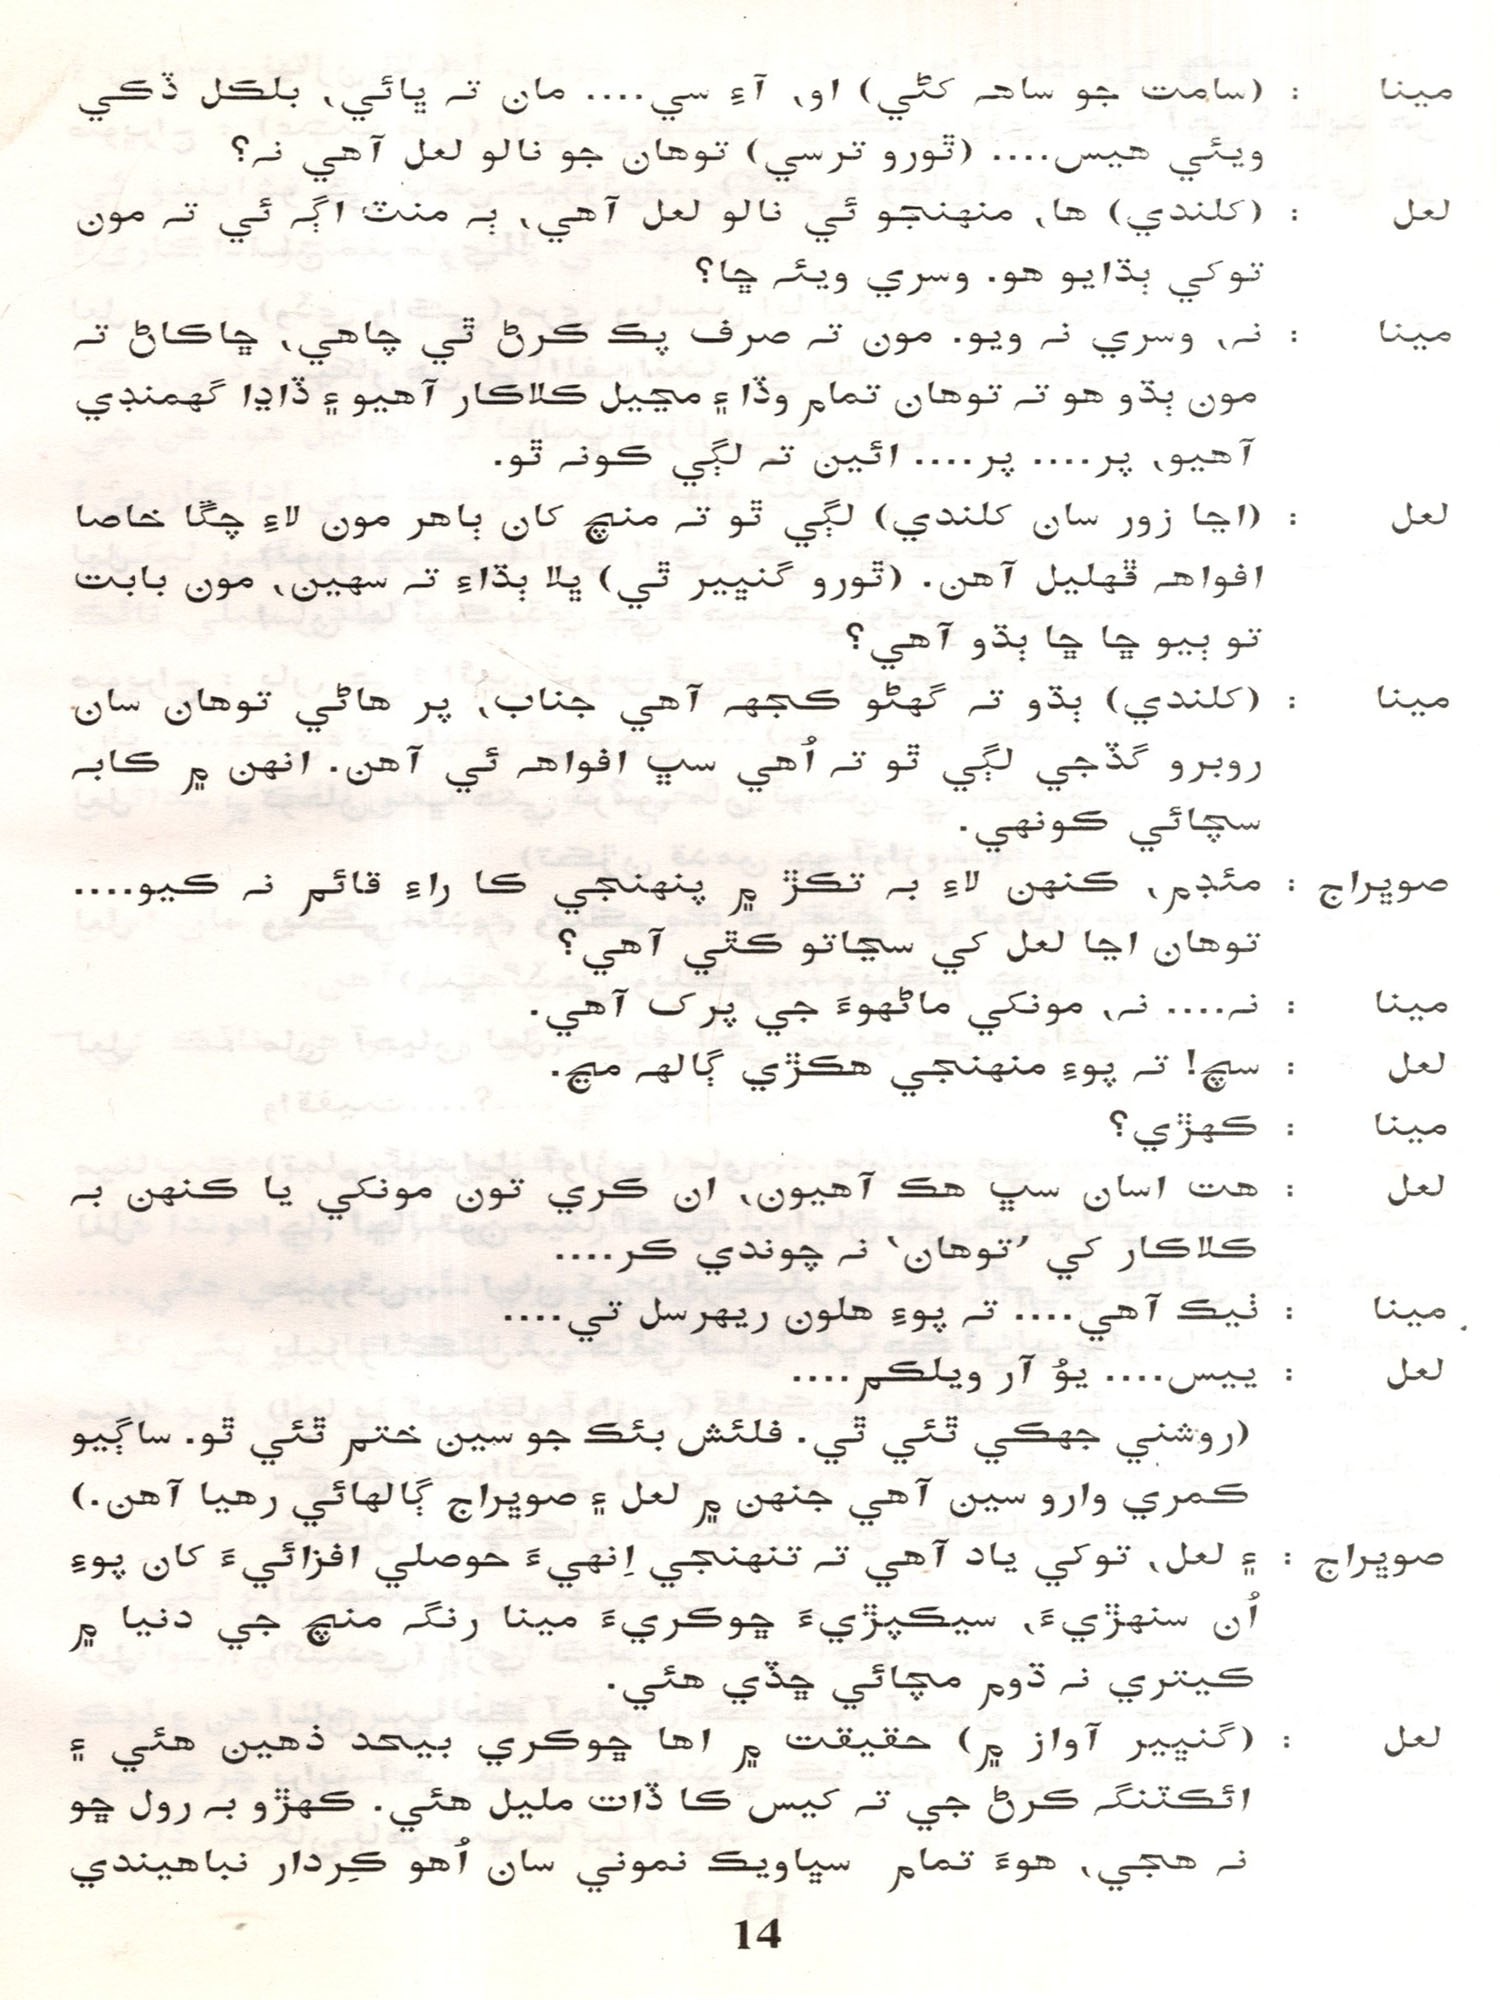 مينا : (سامت جو ساهہ کڻي) او، آءِ سي.... مان تہ ڀائي، بلڪل ڏڪي
ويئي هيس.... (ٿورو ترسي) توهان جو نالو لعل آهي نہ؟
لعل : (کلندي) ها، منهنجو ئي نالو لعل آهي، ٻہ منٽ اڳہ ئي تہ مون
توکي ٻڌايو هو. وسري ويئہ ڇا؟
مينا : نہ، وسري نہ ويو. مون تہ صرف پڪ ڪرڻ ٿي چاهي، ڇاڪاڻ تہ
مون ٻڌو هو تہ توهان تمام وڏا ۽ مڃيل ڪلاڪار آهيو ۽ ڏاڍا گھمنڊي
آهيو، پر.... پر.... ائين تہ لڳي ڪونہ ٿو.
لعل : (اڃا زور سان کلندي) لڳي ٿو تہ منچ کان ٻاهر مون لاءِ چڱا خاصا
افواهہ ڦهليل آهن. (ٿورو گنڀير ٿي) ڀلا ٻڌاءِ تہ سهين، مون بابت
تو ٻيو ڇا ڇا ٻڌو آهي؟
مينا : (کلندي) ٻڌو تہ گھڻو ڪجھہ آهي جناب، پر هاڻي توهان سان
روبرو گڏجي لڳي ٿو تہ اُهي سڀ افواهہ ئي آهن. انهن ۾ ڪابہ
سچائي ڪونهي.
صوڀراج : مئڊم، ڪنهن لاءِ بہ تڪڙ ۾ پنهنجي ڪا راءِ قائم نہ ڪيو....
توهان اڃا لعل کي سڃاتو ڪٿي آهي؟
مينا : نہ.... نہ، مونکي ماڻهوءَ جي پرک آهي.
لعل : سچ! تہ پوءِ منهنجي هڪڙي ڳالهہ مڃ.
مينا : ڪهڙي؟
لعل : هت اسان سڀ هڪ آهيون، ان ڪري تون مونکي يا ڪنهن بہ
ڪلاڪار کي ’توهان‘ نہ چوندي ڪر....
مينا : ٺيڪ آهي.... تہ پوءِ هلون ريهرسل تي....
لعل : ييس.... يوُ آر ويلڪم....
(روشني جھڪي ٿئي ٿي. فلئش بئڪ جو سين ختم ٿئي ٿو. ساڳيو
ڪمري وارو سين آهي جنهن ۾ لعل ۽ صوڀراج ڳالهائي رهيا آهن.)
صوڀراج : ۽ لعل، توکي ياد آهي تہ تنهنجي اِنهيءَ حوصلي افزائيءَ کان پوءِ
اُن سنهڙيءَ، سيڪپڙيءَ ڇوڪريءَ مينا رنگہ منچ جي دنيا ۾
ڪيتري نہ ڌوم مچائي ڇڏي هئي.
لعل : (گنڀير آواز ۾) حقيقت ۾ اها ڇوڪري بيحد ذهين هئي ۽
ائڪٽنگہ ڪرڻ جي تہ کيس ڪا ڏات مليل هئي. ڪهڙو بہ رول ڇو
نہ هجي، هوءَ تمام سڀاويڪ نموني سان اُهو ڪِردار نباهيندي
14